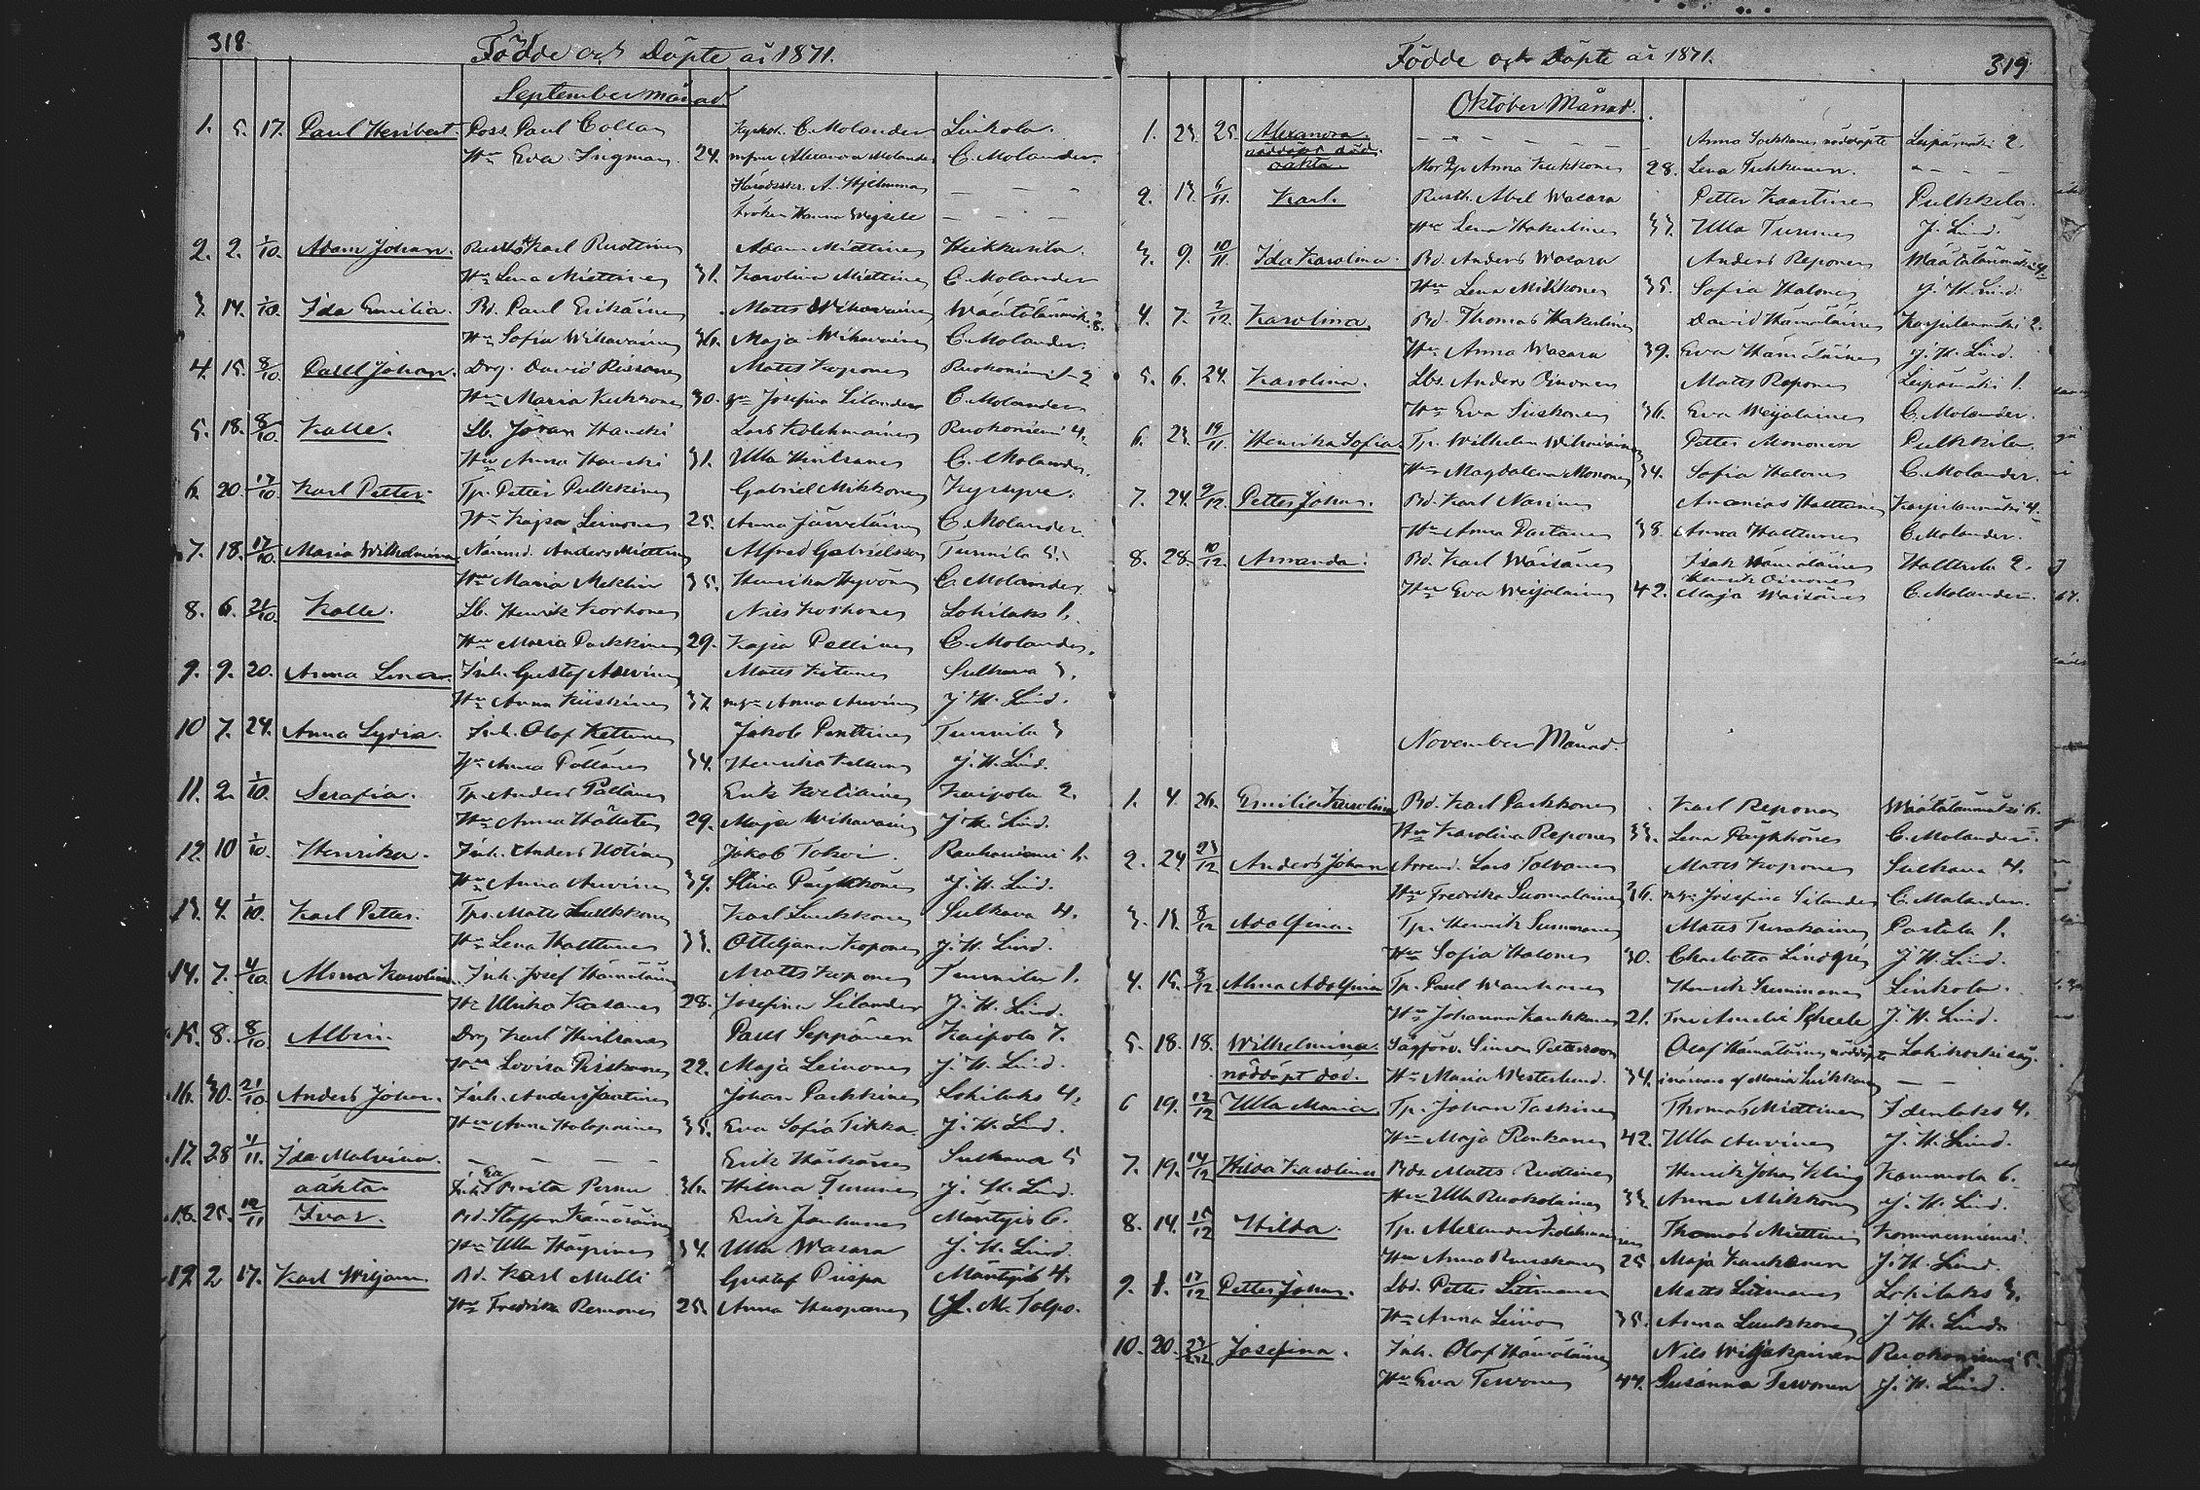 318
Födde och Döpte år 1871.
September månad
1. 5. 17. Paul Heribert. Poss. Paul Collan Kyrkoh. C. Molander Linkola.
Hu Eva Ingman. 24. mfru Alexandra Molander C. Molander.
Häradsskr. A. Hjelmman — — —
fröken Hanna — — —
2. 2. 1/10. Adam Johan. Karl Ruottinen Adam Miettinen Heikkurila.
Hu Lena Miettinen 31. Karolina Miettinen C. Molander
3. 14. 1/10. Ida Emilia. Bd. Paul Eriksinen Matts Wihavainen Wäätälänmäki 8.
Hu Sofia Wihavainen 36. Maja Wihavainen C. Molander.
4. 15. 8/10. Paull Johan. Drg. David Rissanen Matts Koponen Ruokoniemi 2
Hu Maria Kukkonen 30. Josefina Silander C. Molander
5. 18. 8/10. Kalle. Lb. Jöran Hanski Lars Kolehmainen Ruokoniemi 4.
Hu Anna Hanski 31. Ulla Hirvonen C. Molander.
6. 20. 17/10. Karl Petter. Tp. Petter Pulkkinen Gabriel Mikkonen Kyrsyä.
Hu Kajsa Leinonen 25. Anna Järveläinen C. Molander.
7. 18. 17/10. Maria Wilhelmina Nämnd. Anders Miettinen Alfred Gabrielsson Tunnila 5.
Hu Maria Meklin 35. Henrika Hyvönen C. Molander.
8. 6. 24/10. Kalle. Lb. Henrik Korhonen Nils Korhonen Lohilaks 1.
Hu Maria Parkkinen 29. Kajsa Pellinen C. Molander.
9. 9. 20. Anna Lena. Inh. Gustaf Auvinen Matts Kitunen Sulkava 3.
Hu Anna Kiiskinen 37. Anna Auvinen J. H. Lind.
10 7. 24. Anna Lydia. Inh. Olof Kettunen Jakob Penttinen Tunnila 3
Hu Anna Pöllänen 34. Henrika J. H. Lind.
11. 2. 1/10. Serafia. Tp. Anders Pöllänen Erik Kaipola 2.
Hu Anna 29. Maja Wihavainen J. H. Lind.
12 10 1/10. Henrika. Inh. Anders Notinen Jakob Toivoi. Rauhaniemi 1.
Hu Anna Auvinen 39. Stina Pöyhkönen J. H. Lind.
13. 4. 1/10. Karl Petter. Tp. Matts Luukkonen Karl Luukkonen Sulkava 4.
Hu Lena Halttunen 33. Ottiljana Koponen J. H. Lind.
14. 7. 4/10. Alma Karolina. Inh. Josef Hämäläinen Matts Koponen Tunnila 1.
Hu Ulrika Kasanen 28. Josefina Silander J. H. Lind.
15. 8. 8/10. Albin. Drg Karl Hirvonen Paull Seppänen Kaipola 7.
Hu Lovisa Piiskonen 22. Maja Leinonen J. H. Lind.
16. 30. 21/10. Anders Johan. Inh. Anders Jantinen Johan Parkkinen Lohilaks 4.
Hu Anna Holopainen 35. Eva Sofia Tikka. J. H. Lind.
17. 28 4/11. Ida Malvina. — — — — Erik Härkänen Sulkava 5
oäkta. Inh. Brita Pernu 36. Helma Turunen J. H. Lind.
18. 25. 12/11 Ivar. Bd. Staffan Kämäräinen Erik Janhunen Mäntyis 6.
Hu Ulla Häyrinen 34. Ulla Wasara J. H. Lind.
19. 2 17. Karl Wiljam. Bd. Karl Malli Gustaf Piispa Mäntyis 4.
Hu Fredrika Remonen 25. Anna Huopanen M. Tolpo.
319
Födde och Döpte år 1871.
Oktober Månad.
1. 23. 25. Alexandra — — — Anna nöddöpte Leipämäki 2.
nöddöpt död.
oäkta Mor Anna Kukkonen 28. Lena Tuhkunen. — — —
2. 13. 5/11. Karl. Rusth. Abel Wasara Petter Kaartinen Pulkkila.
Hu Lena Hakulinen 37. Ulla Turunen J. Lind.
3. 9. 10/11. Ida Karolina. Bd. Anders Wasara Anders Reponen Wäätälänmäki 4.
Hu Lena Mikkonen 35. Sofia Halonen J. H. Lind.
4. 7. 2/12. Karolina. Bd. Thomas Hakulinen David Hämäläinen Karjulanmäki 2.
Hu Anna Wasara 39. Eva Hämäläinen J. H. Lind.
5. 6. 24. Karolina. Lbs. Anders Oinonen Matts Reponen Leipämäki 1.
Hu Eva Siiskonen 36. Eva Weijalainen C. Molander.
6. 23. 19/11. Henrika Sofia. Tp. Wilhelm Wihavainen Petter Mononen Pulkkila.
Hu Magdalena Mononen 34. Sofia Halonen C. Molander.
7. 24. 9/12. Petter Johan. Bd. Karl Narinen Ananias Halttunen Karjulanmäki 4.
Hu Anna Partanen 38 Anna Halttunen C. Molander.
8. 28. 10/12. Amanda. Bd. Karl Wäisänen Isak Hämäläinen Halttula 2.
Henrik Oinonen
Hu Eva Weijalainen 42. Maja Waisänen C. Molander.
November Månad.
1. 4. 26. Emilia Karolina Bd. Karl Parkkonen Karl Reponen Wäätälänmäki 6.
Hu Karolina Reponen 33. Lena Pöyhkönen C. Molander.
2. 24 23/12 Anders Johan Arrend. Lars Tolvanen Matts Koponen Sulkava 4.
Hu Fredrika Suomalainen 36. Josefina Silander C. Molander.
3. 13. 8/12 Adolfina. Tp. Henrik Summanen Matts Turakainen Partala 1.
Hu Sofia Halonen 30. Charlotta Lindqvist J. H. Lind.
4. 15. 8/12 Alina Adolfina Tp. Paul Wanhanen Henrik Summanen Linkola.
Hu Johanna Kaukkanen 21. Fru Amelie Scheele J. H. Lind.
5. 18. 18. Wilhelmina. Sågförv. Simon Pettersson Olof Hämäläinen nöddöpte Lohikoski såg.
nöddöpt död. Hu Maria Westerlund. 34. i närvaro af Maria — —
6 19. 12/12 Ulla Maria Tp. Johan Taskinen Thomas Miettinen Idenlaks 4.
Hu Maja Ronkanen 42. Ulla Auvinen J. H. Lind.
7. 19. 14/12 Hilda Karolina Bds. Matts Ruottinen Henrik Johan Kling Kammola 6.
Hu Ulla Ruokolainen 33. Anna Mikkonen J. H. Lind.
8. 14. 15/12 Hilda. Tp. Alexander Kolehmainen Thomas Miettinen Kommerniemi.
Hu Anna Ruuskanen 25. Maja Kaukonen J. H. Lind.
9. 1. 17/12 Petter Johan. Lbd. Petter Littmanen Matts Littmanen Lohilaks 3.
Hu Anna 35. Anna Luukkonen J. H. Lind.
10. 20. 23/12 Josefina. Inh. Olof Hämäläinen Nils Ruokoniemi 5.
Hu Eva Tervonen 44. Susanna Tervonen J. H. Lind.